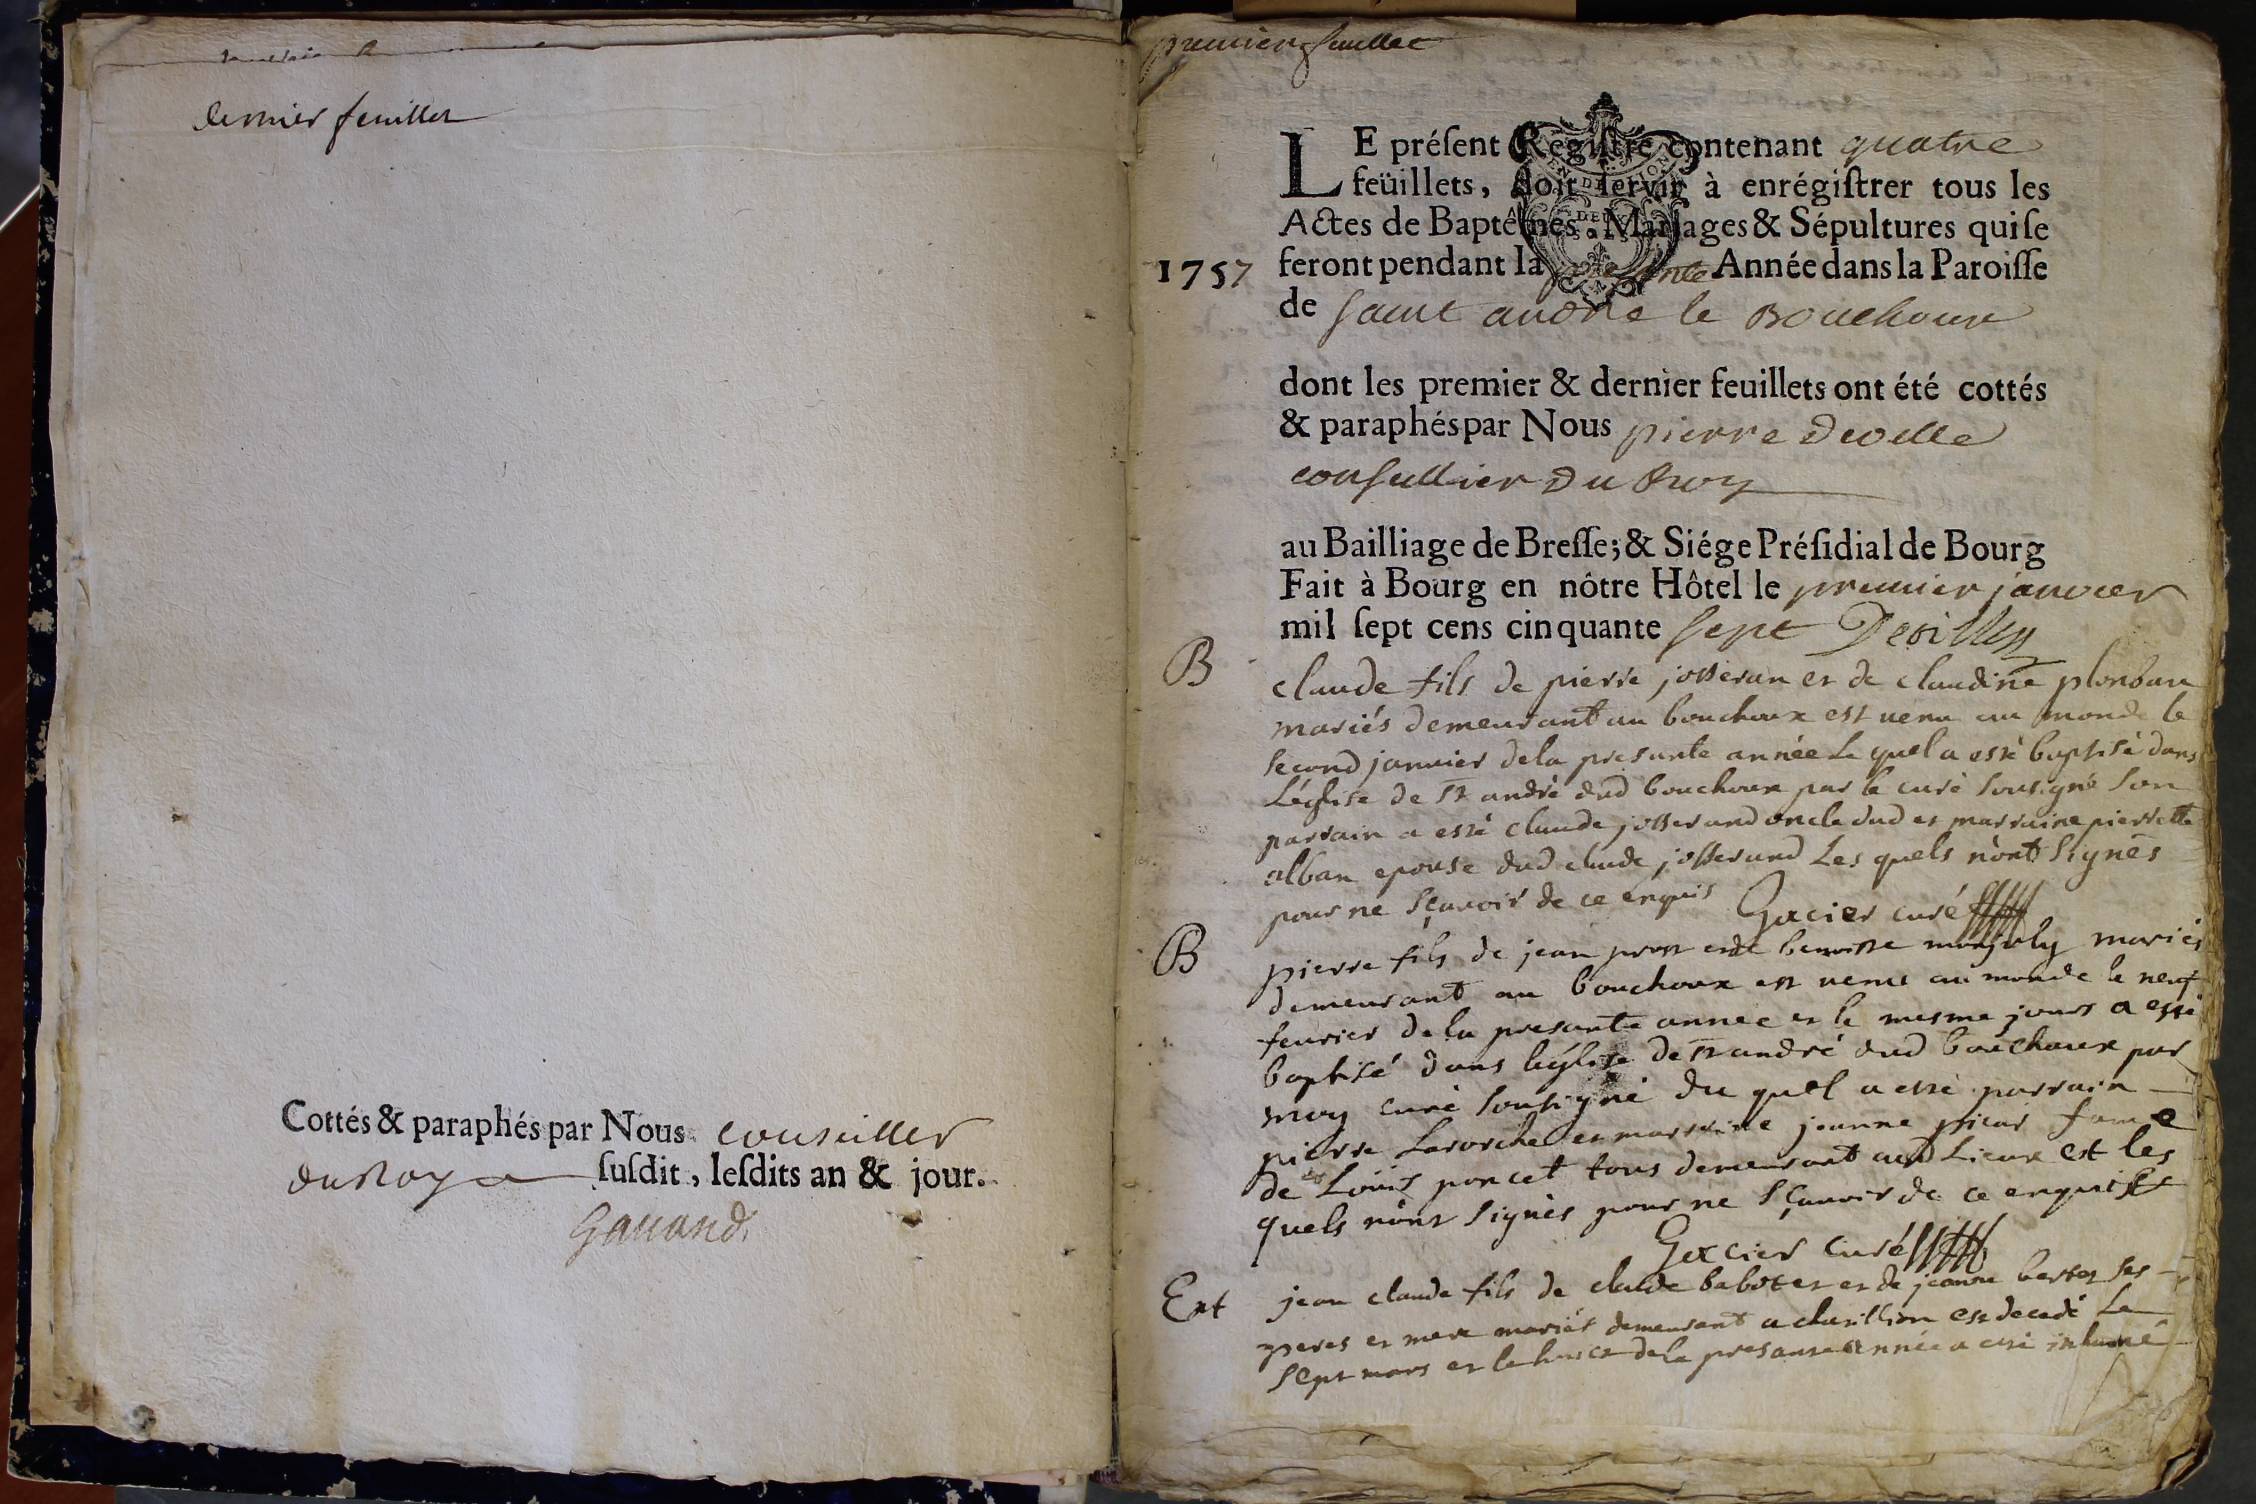 dernier feuillet
Cottés & paraphés par Nous conseiller
du Roy suſdit, leſdits an & jour.
Gauand
premier feuillet
LE préſent Regiſtre contenant quatre
feüillets, doit ſervir à enrégiſtrer tous les
Actes de Baptêmes, Mariages & Sépultures qui ſe
1757 feront pendant la presente Année dans la Paroiſſe
de saint andre le Bouchoux
dont les premier & dernier feuillets ont été cottés
& paraphés par Nous pierre deville
consullier Du Roy
au Bailliage de Breſſe; & Siége Préſidial de Bourg
Fait à Bourg en nôtre Hôtel le premier janvier
mil ſept cens cinquante sept Deville
B claude fils de pierre josseran et de claudine plonban
mariés demeurant au bouchoux est venu au monde le
second janvier dela presante année Le quel a esté baptisé dans
L'église de st andré dud bouchoux par le curé sousigné son
parrain a esté claude josserand oncle dud et marraine pierrette
alban epouse dud claude josserand Les quels n'ont signés
pour ne sçavoir de ce enquis Gacier curé
B pierre fils de jean prost et de benoiste monjoly mariés
demeurant au bouchoux est venu au monde le neuf
feurier de la presante annee et le mesme jours a esté
baptisé dans léglise de st andré dud bouchoux par
moy curé sousigné du quel a esté parrain
pierre Lavorche et marraine jeanne picar fame
de Loüis poncet tous demeurant aud Lieux est les
quels n'ont signés pour ne sçavoir de ce enquis
Gacier curé
Ent jean claude fils de claude babotet et de jeanne ses
peres et mere mariés demeurant a chatillion est decedé Le
sept mars et le huict dela presante année a esté inhumé